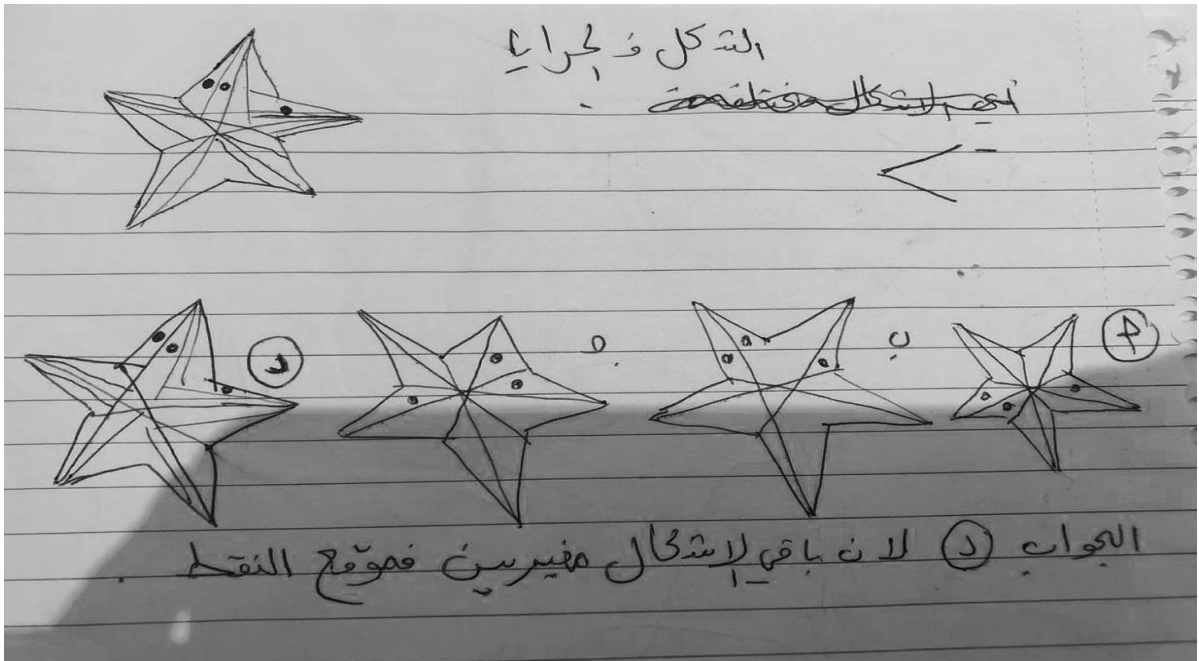 الشكل في المرايا
أ
ب
ج
د
الجواب (د) لان باقي الاشكال مغيرين فموقع النقط .